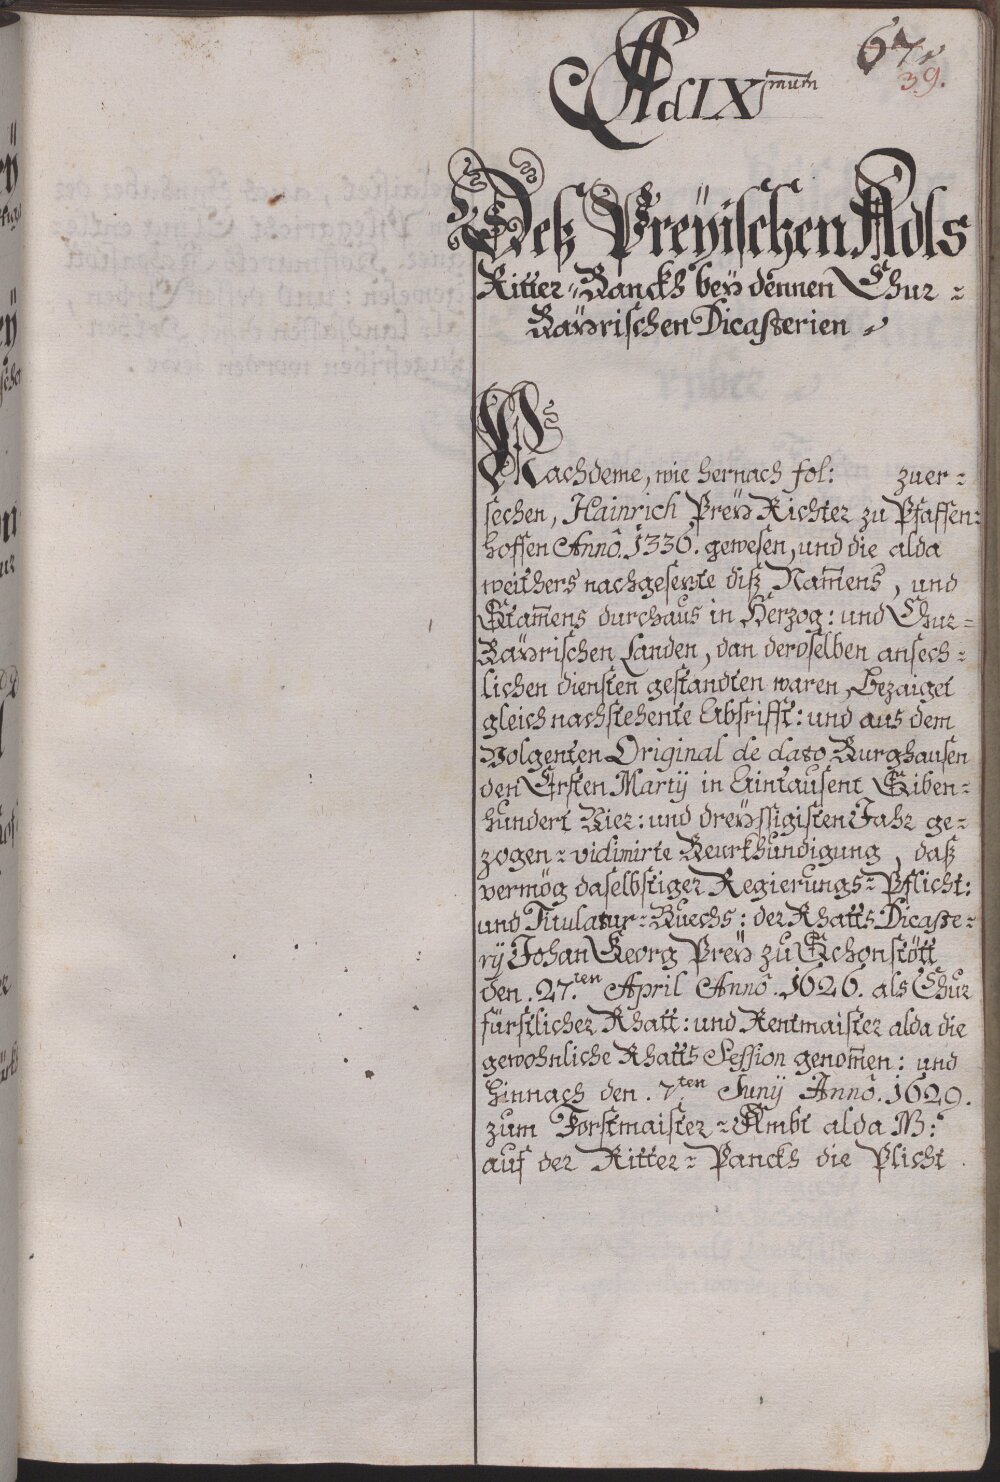 67r
39.
Ad IX mum
Deß Preÿischen Adls
Ritter-Banckh beÿ dennen Chur-
Baÿrischen Dicasterien
Nachdeme, wie hernach fol: zuer-
sechen, Hainrich Preÿ Richter zu Pfaffen-
hoffen Anno. 1336. gewesen, und die alda
weithers nachgesetzte diß Nam̄ens, und
Stam̄ens durchaus in Herzog: und Chur-
Baÿrischen Landen, dan deroselben ansech-
lichen diensten gestandten waren, Bezaiget
gleich nachstehente Abschrifft: und aus dem
Volgenten Original de dato Burghausen
den Ersten Martij in Aintausent Siben-
hundert Vier: und dreÿssigisten Jahr ge-
zogen- vidimirte Beurkhundigung, daß
vermög daselbstiger Regierungs-Pflicht:
und Titulatur-Buechs: der Rhatts Dicaste-
rij Johan Georg Preÿ zu Schonstött
den. 27.ten April Anno. 1626. als Chur
fürstlicher Rhatt: und Rentmaister alda die
gewohnliche Rhatts Session genom̄en: und
hinnach den. 7.ten Junij Anno. 1629.
zum Forstmaister-Ambt alda
auf der Ritter-Panckh die Plicht